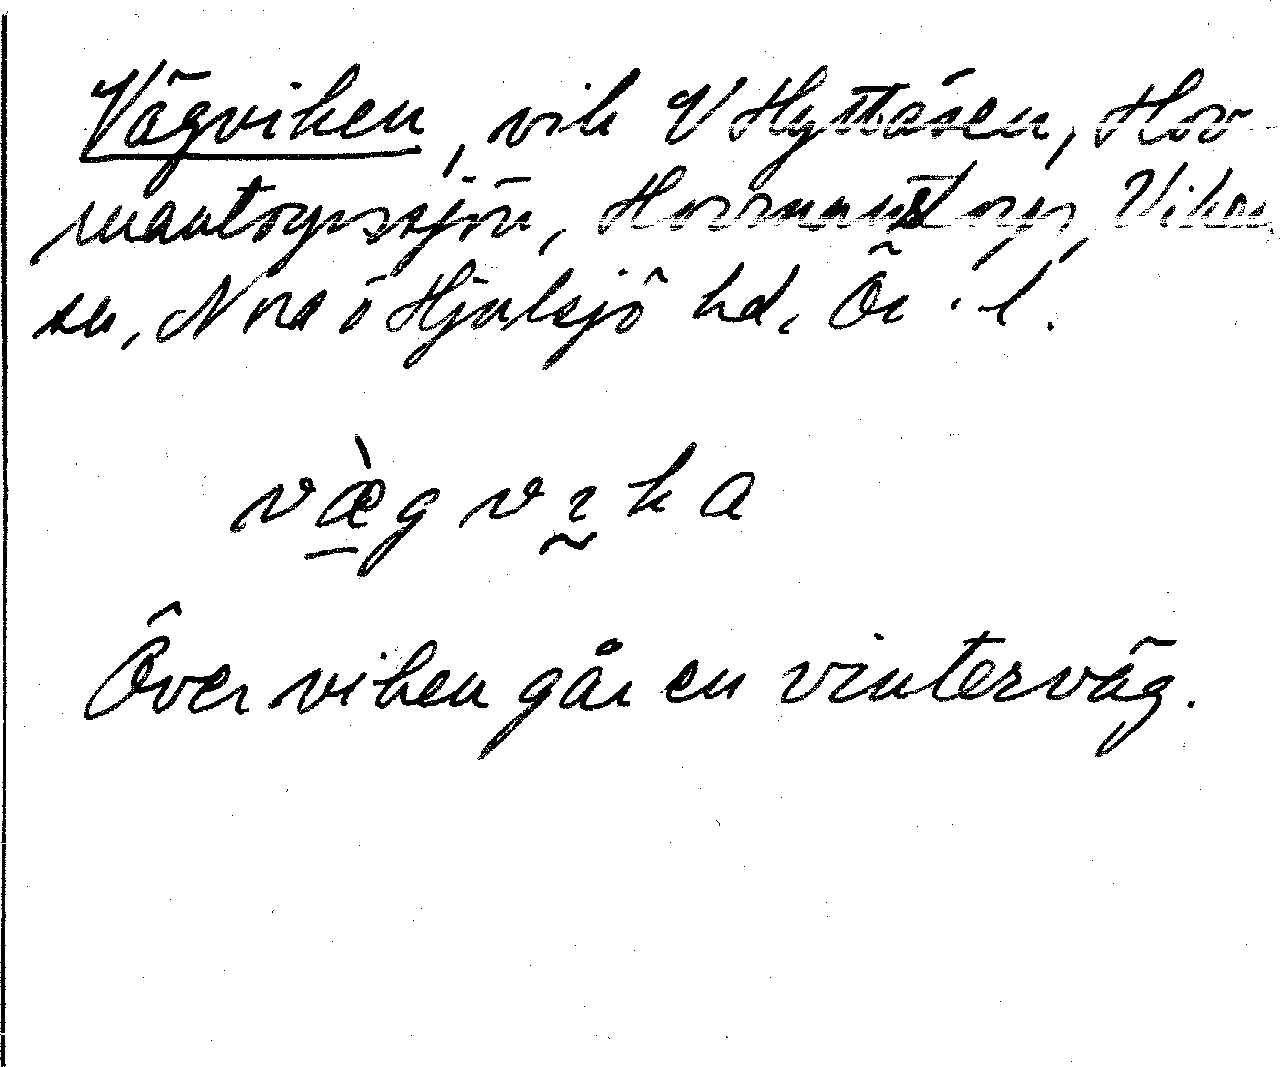 Vägviken, vik V Hyttåsen, Hor-
mantorpssjön, Hormanstorp, Viker
sn, Nora o Hjulsjö hd, Ör. l.
væ̀g vıka
Över viken går en vinterväg.